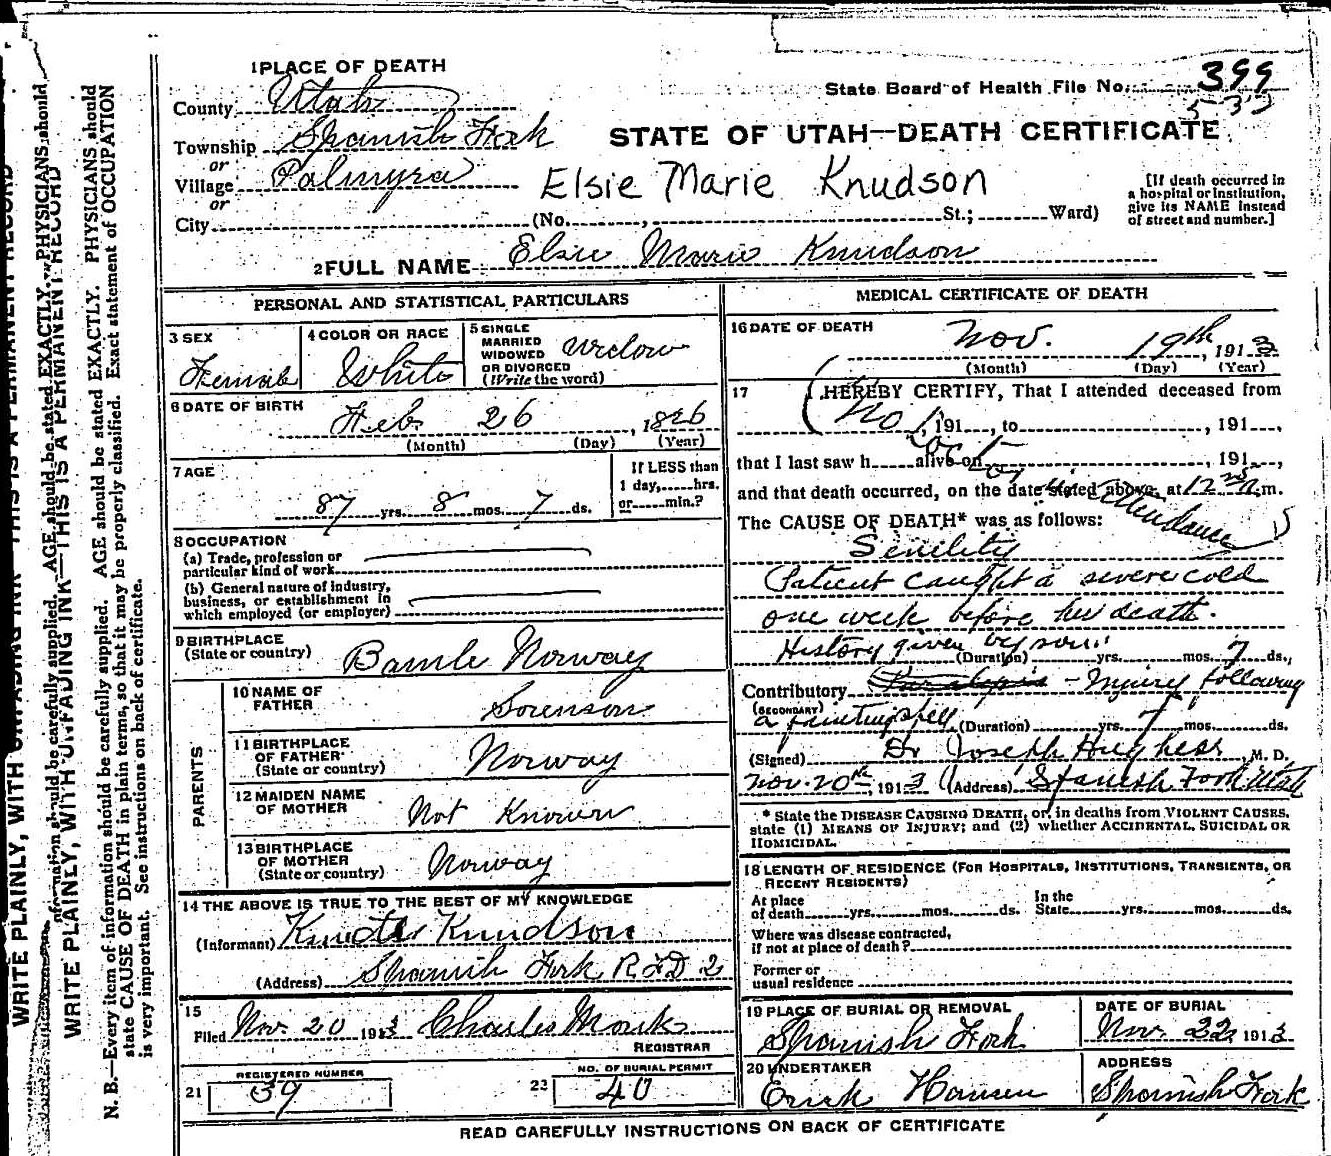 1 PLACE OF DEATH
State Board of Health File No. 399
County Utah
Township Spanish Fork
STATE OF UTAH—DEATH CERTIFICATE
or
Village Palmyra
Elsie Marie Knudson
or
City (No. , St.; Ward)
[If death occurred in
a hospital or institution,
give its NAME instead
of street and number.]
2 FULL NAME Elsie Marie Knudson
PERSONAL AND STATISTICAL PARTICULARS
3 SEX
Female
4 COLOR OR RACE
White
5 SINGLE
MARRIED
WIDOWED
OR DIVORCED
(Write the word)
Widow
6 DATE OF BIRTH
Feb 26, 1826
(Month) (Day) (Year)
7 AGE
87 yrs. 8 mos. 7 ds.
If LESS than
1 day, hrs.
or min.?
8 OCCUPATION
(a) Trade, profession or
particular kind of work
(b) General nature of industry,
business, or establishment in
which employed (or employer)
9 BIRTHPLACE
(State or country)
Bamle Norway
PARENTS
10 NAME OF
FATHER
Sorenson
11 BIRTHPLACE
OF FATHER
(State or country)
Norway
12 MAIDEN NAME
OF MOTHER
Not Known
13 BIRTHPLACE
OF MOTHER
(State or country)
Norway
14 THE ABOVE IS TRUE TO THE BEST OF MY KNOWLEDGE
(Informant) Knudson
(Address) Spanish Fork R F D 2
15
Filed Nov. 20 1913 Charles Monk
REGISTRAR
21 REGISTERED NUMBER
39
22 NO. OF BURIAL PERMIT
40
MEDICAL CERTIFICATE OF DEATH
16 DATE OF DEATH
Nov. 19th, 1913
(Month) (Day) (Year)
17 (I HEREBY CERTIFY, That I attended deceased from
No , 191 , to , 191 ,
Doctor
that I last saw h alive on , 191 ,
in attendance)
and that death occurred, on the date stated above, at 12 m.
The CAUSE OF DEATH* was as follows:
Senility
Patient caught a severe cold
one week before her death.
History given by son.
(Duration) yrs. mos. 7 ds.,
Contributory Paralysis - Injury following
(SECONDARY)
a fainting spell (Duration) yrs. mos. ds.
(Signed) Dr Joseph Hughes M. D.
Nov. 20th, 1913 (Address) Spanish Fork Utah
* State the DISEASE CAUSING DEATH, or, in deaths from VIOLENT CAUSES,
state (1) MEANS OF INJURY; and (2) whether ACCIDENTAL, SUICIDAL OR
HOMICIDAL.
18 LENGTH OF RESIDENCE (FOR HOSPITALS, INSTITUTIONS, TRANSIENTS, OR
RECENT RESIDENTS)
At place
of death yrs. mos. ds.
In the
State yrs. mos. ds.
Where was disease contracted,
if not at place of death?
Former or
usual residence
19 PLACE OF BURIAL OR REMOVAL
Spanish Fork
DATE OF BURIAL
Nov. 22, 1913
20 UNDERTAKER
Erick Hansen
ADDRESS
Spanish Fork
READ CAREFULLY INSTRUCTIONS ON BACK OF CERTIFICATE
WRITE PLAINLY, WITH UNFADING INK—THIS IS A PERMANENT RECORD
N. B.—Every item of information should be carefully supplied. AGE should be stated EXACTLY. PHYSICIANS should
state CAUSE OF DEATH in plain terms, so that it may be properly classified. Exact statement of OCCUPATION
is very important. See instructions on back of certificate.